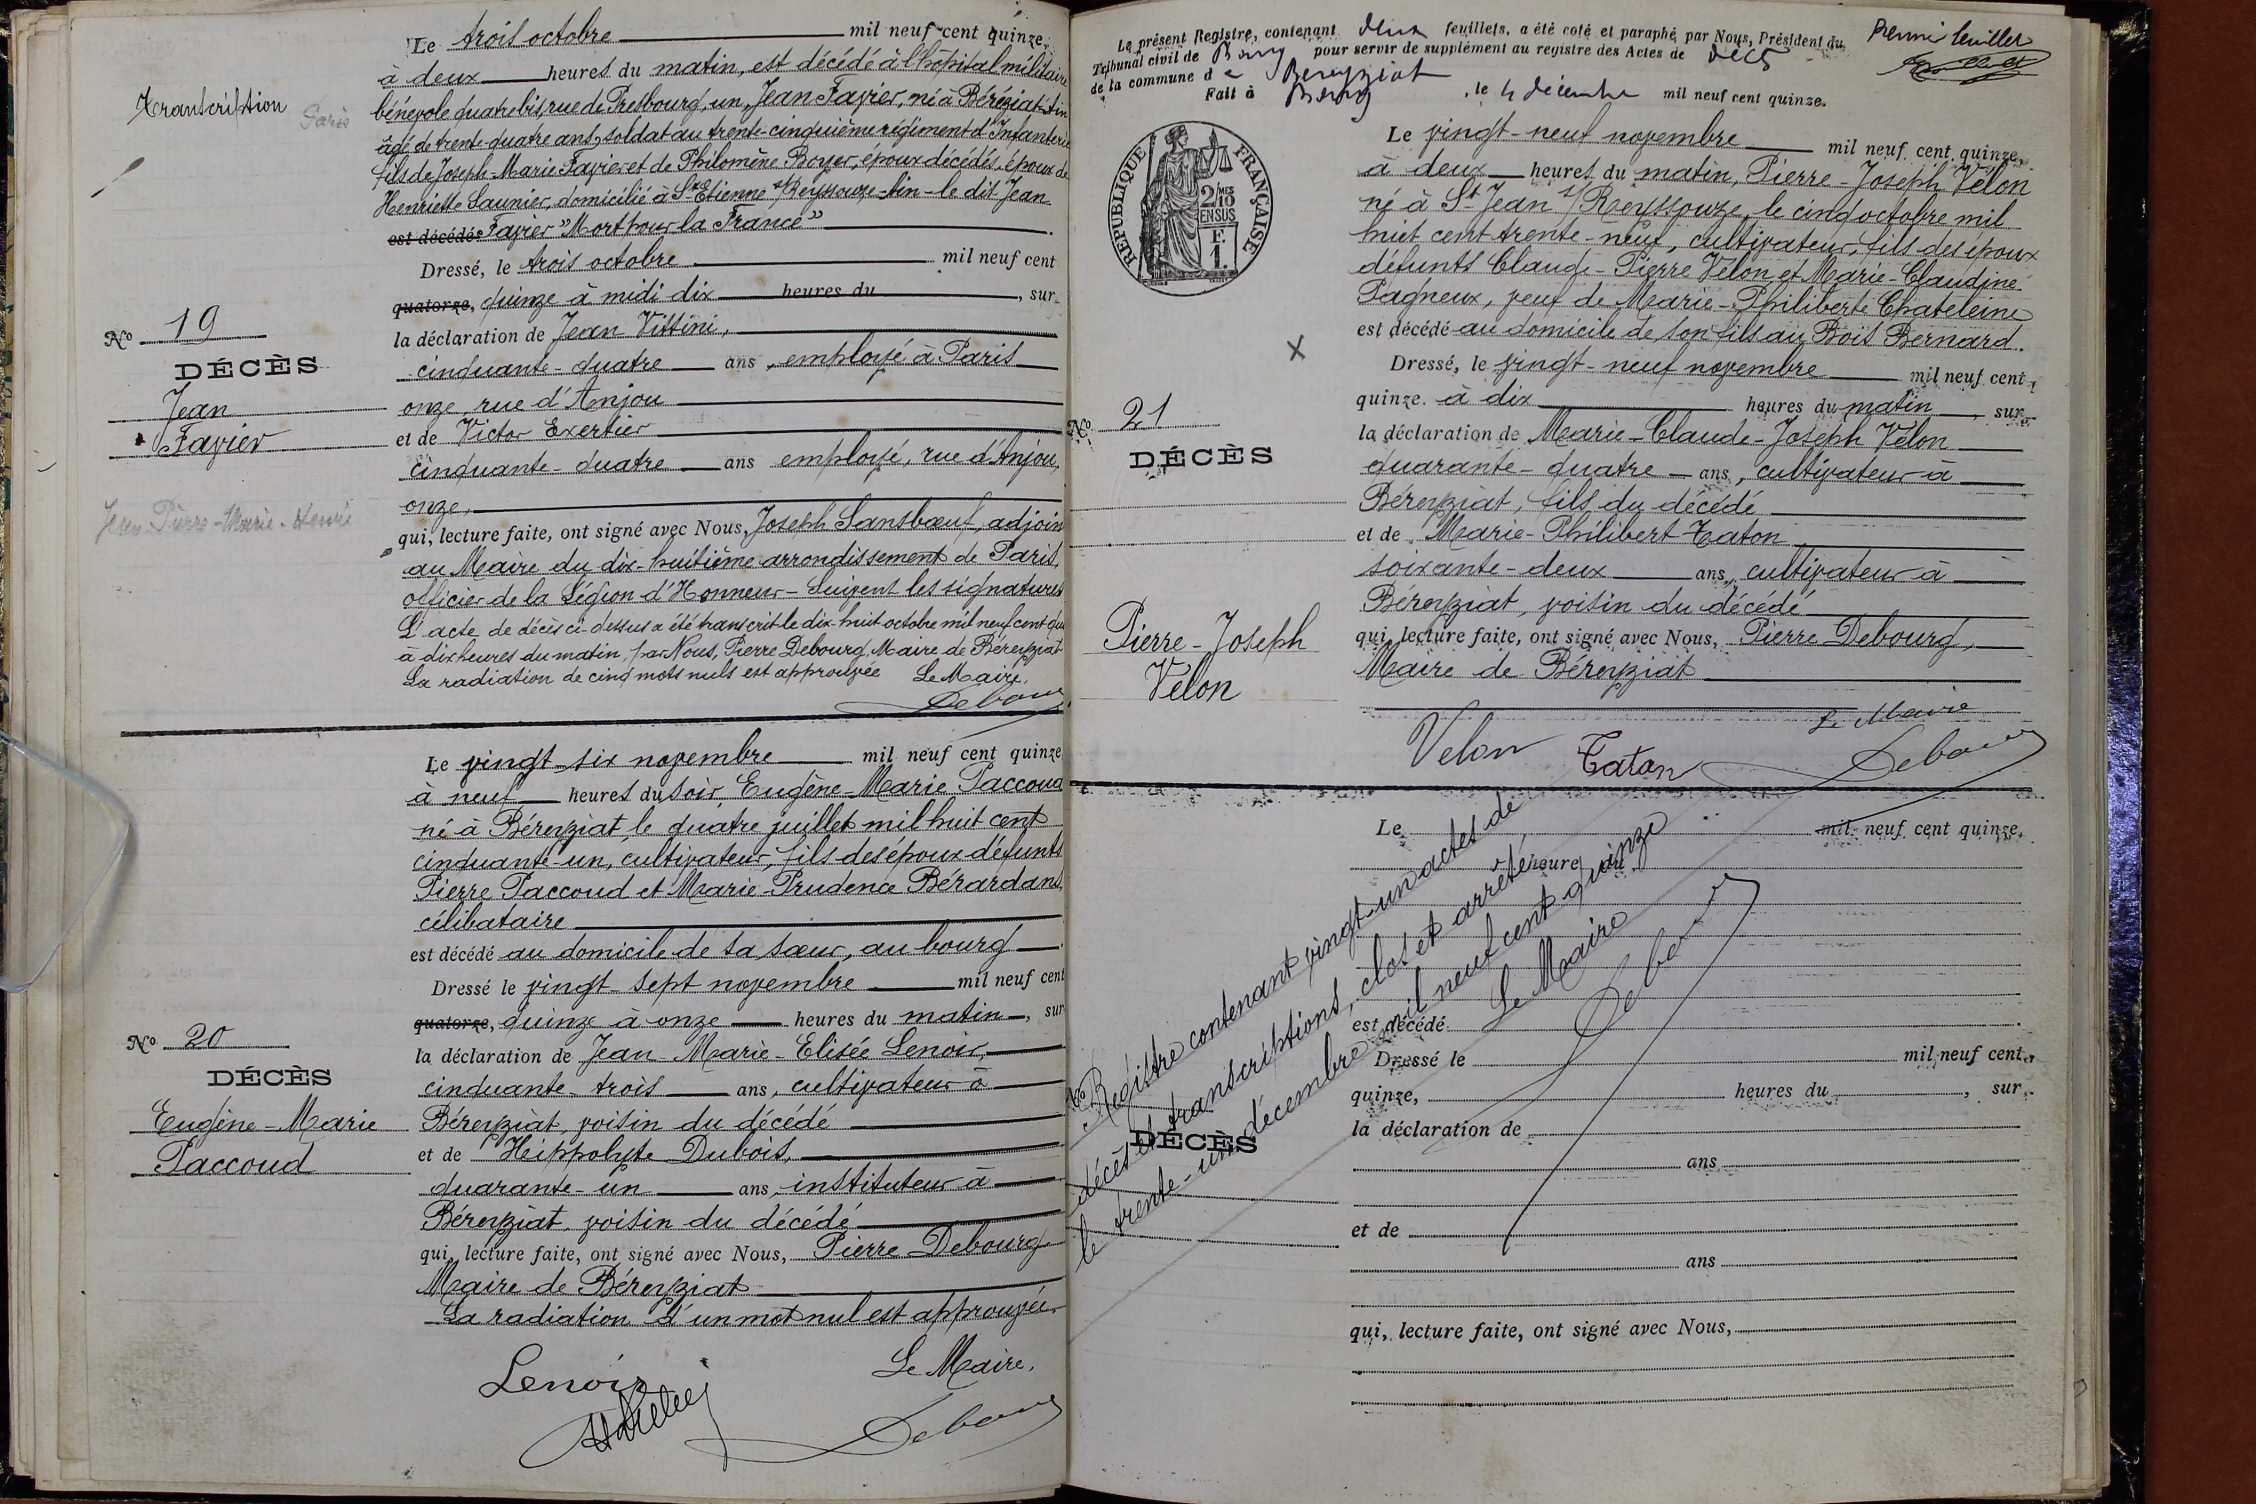 Le trois octobre mil neuf cent quinze,
à deux heures du matin, est décédé à l'hôpital militaire
Transcription
Paris
bénévole quatre bis, rue de Presbourg, un, Jean Favier, né à Béréziat-Ain
âgé de trente-quatre ans, soldat au trente-cinquième régiment d'Infanterie
fils de Joseph-Marie Favier et de Philomène Boyer, époux décédés, époux de
Henriette Saunier, domicilié à St Etienne s/Reyssouze-Ain-le dit Jean
est décédé Favier "Mort pour la France"
Dressé, le trois octobre mil neuf cent
quatorze, quinze à midi dix heures du , sur
No 19
la déclaration de Jean Vittini,
DÉCÈS
cinquante-quatre ans, employé à Paris
Jean
onze, rue d'Anjou
Favier
et de Victor Exertier
cinquante-quatre ans employé, rue d'Anjou,
onze,
Jean-Pierre-Marie-Henri
qui, lecture faite, ont signé avec Nous, Joseph Sansbœuf, adjoint
au Maire du dix-huitième arrondissement de Paris,
officier de la Légion d'Honneur - Suivent les signatures
L'acte de décès ci-dessus a été transcrit le dix-huit octobre mil neuf cent qu
à dix heures du matin, par Nous, Pierre Debourg, Maire de Béreyziat
La radiation de cinq mots nuls est approuvée Le Maire,
Debourg
Le vingt-six novembre mil neuf cent quinze
à neuf heures du soir, Eugène-Marie Paccoud
né à Béreyziat, le quatre juillet mil huit cent
cinquante-un, cultivateur, fils des époux défunts
Pierre Paccoud et Marie-Prudence Bérardans,
célibataire
est décédé au domicile de sa sœur, au bourg
Dressé le vingt-sept novembre mil neuf cent
quatorze, quinze à onze heures du matin, sur
No 20
la déclaration de Jean-Marie-Elisée Lenoir,
DÉCÈS
cinquante-trois ans, cultivateur à
Eugène-Marie
Béreyziat, voisin du décédé
Paccoud
et de Hippolyte Dubois,
quarante-un ans, instituteur à
Béreyziat, voisin du décédé
qui, lecture faite, ont signé avec Nous, Pierre Debourg
Maire de Béreyziat
La radiation d'un mot nul est approuvée
Lenoir
Le Maire,
Debourg
Le présent Registre, contenant deux feuillets, a été coté et paraphé par Nous, Président du
Premier feuillet
Tribunal civil de Bourg pour servir de supplément au registre des Actes de décès
de la commune de Béréyziat
Fait à Bourg, le 4 décembre mil neuf cent quinze.
REPUBLIQUE FRANÇAISE
2/10 EN SUS
F. 1.
Le vingt-neuf novembre mil neuf cent quinze,
à deux heures du matin, Pierre-Joseph Velon
né à St Jean s/Reyssouze, le cinq octobre mil
huit cent trente-neuf, cultivateur, fils des époux
défunts Claude-Pierre Velon et Marie-Claudine
Pagneux, veuf de Marie-Philiberte Chateleine
est décédé au domicile de son fils au Bois Bernard.
Dressé, le vingt-neuf novembre mil neuf cent
quinze. à dix heures du matin, sur
No 21
la déclaration de Marie-Claude-Joseph Velon
DÉCÈS
quarante-quatre ans, cultivateur à
Béreyziat, fils du décédé
et de Marie-Philibert Taton
soixante-deux ans, cultivateur à
Béreyziat, voisin du décédé
Pierre-Joseph
Velon
qui, lecture faite, ont signé avec Nous, Pierre Debourg,
Maire de Béreyziat
Le Maire
Velon
Taton
Debourg
Le mil neuf cent quinze,
heure du
est décédé
Dressé le mil neuf cent
quinze, heures du , sur
No
DÉCÈS
la déclaration de
ans
et de
ans
qui, lecture faite, ont signé avec Nous,
Registre contenant vingt-un actes de
décès et transcriptions, clos et arrêté
le trente-un décembre mil neuf cent quinze
Le Maire
Debourg